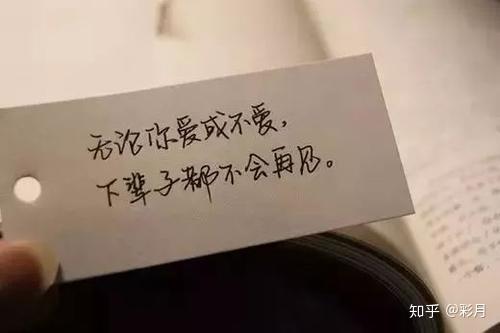 无论你爱或不爱，
下辈子都不会再见。
知乎 @彩月